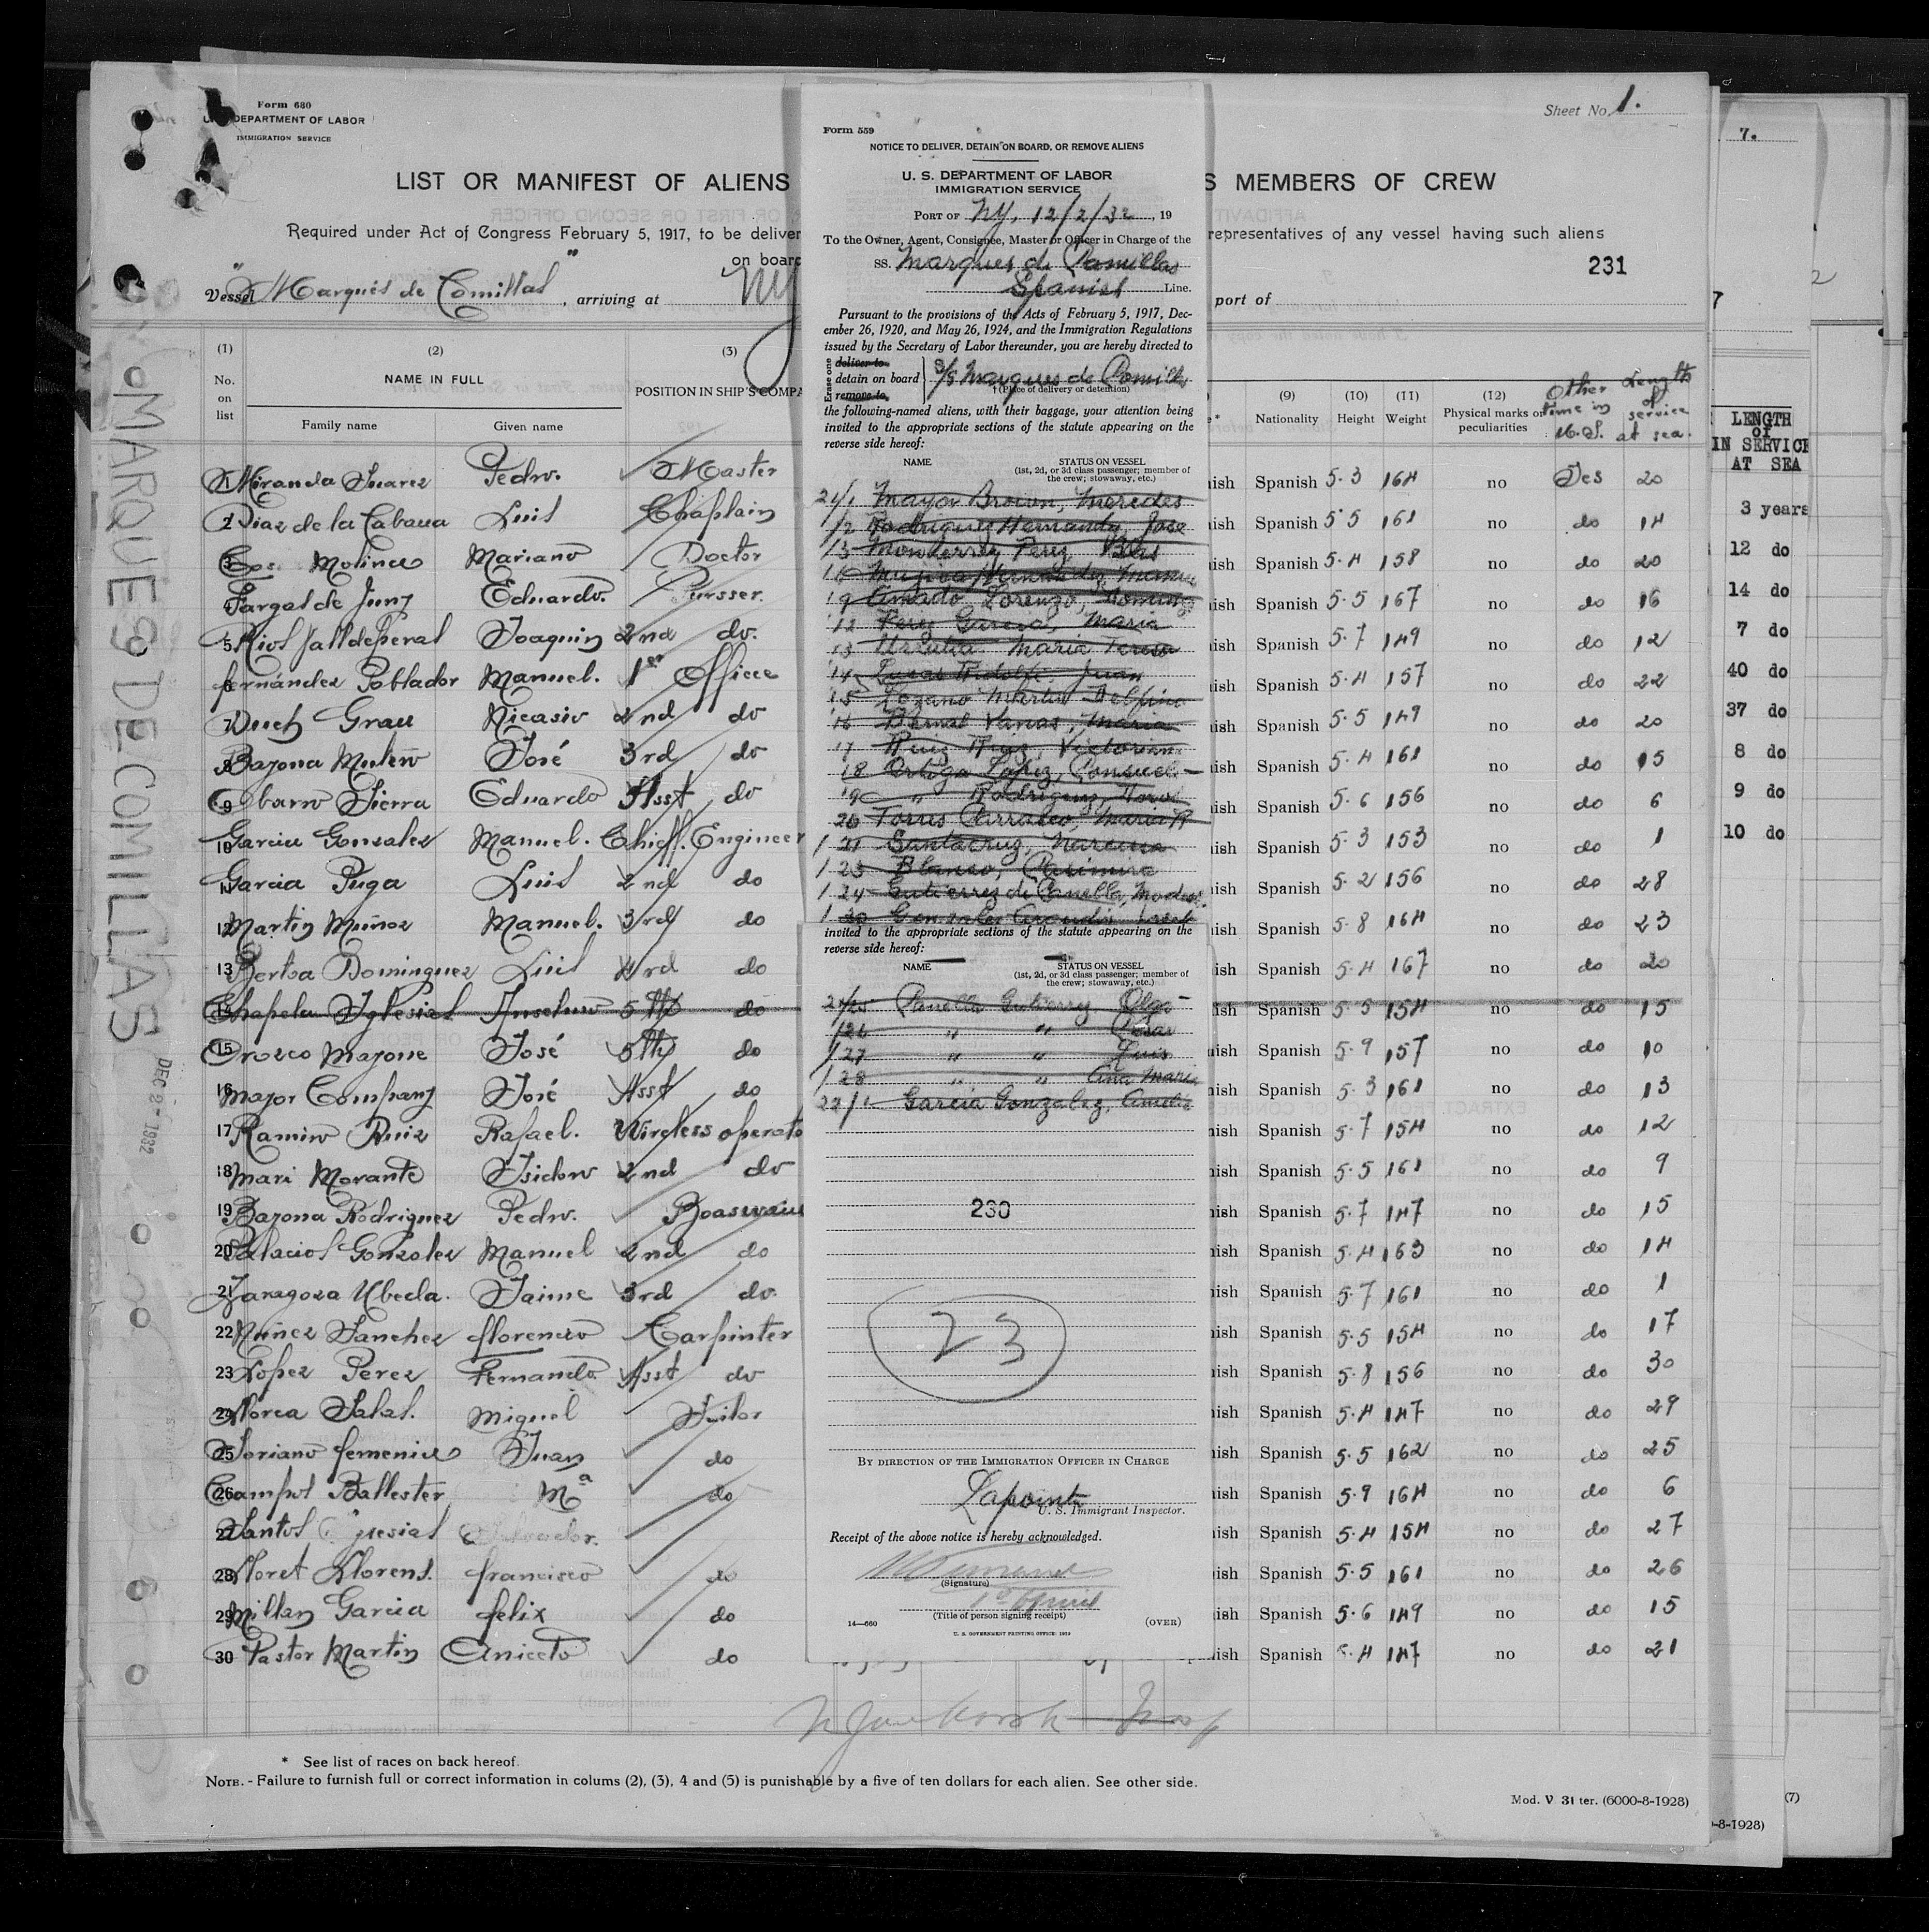 Form 680
DEPARTMENT OF LABOR
IMMIGRATION SERVICE
Sheet No. 1.
LIST OR MANIFEST OF ALIENS
S MEMBERS OF CREW
Required under Act of Congress February 5, 1917, to be deliver
representatives of any vessel having such aliens
on board
231
Vessel "Marqués de Comillas", arriving at NY
port of
(1) (2) (3)
No. on list
NAME IN FULL
POSITION IN SHIP'S COMPA
Family name Given name
(9) (10) (11) (12)
Nationality Height Weight Physical marks or peculiarities
Other time in U.S.
Length of service at sea.
1 Miranda Suarez Pedro. Master
nish Spanish 5.3 164 no Yes 20
2 Diaz de la Cabana Luis Chaplain
nish Spanish 5 5 161 no do 14
3 Cos Molina Mariano Doctor
nish Spanish 5.4 158 no do 20
4 Fargas de Juny Eduardo. Pursser.
nish Spanish 5.5 167 no do 16
5 Rios Valldeperas Joaquin 2nd do.
nish Spanish 5.7 149 no do 12
6 Fernández Poblador Manuel. 1er Officee
nish Spanish 5.4 157 no do 22
7 Duch Grau Nicasio 2nd do
nish Spanish 5.5 149 no do 20
8 Bayona José 3rd do
nish Spanish 5.4 161 no do 15
9 Sierra Eduardo Asst do
nish Spanish 5.6 156 no do 6
10 Garcia Gonzalez Manuel. Chieff. Engineer
nish Spanish 5.3 153 no do 1
11 Garcia Puga Luis 2nd do
nish Spanish 5.2 156 no do 28
12 Martin Muñoz Manuel. 3rd do
nish Spanish 5.8 164 no do 23
13 Dominguez Luis 4rd do
nish Spanish 5.4 167 no do 20
14 Chapela Iglesias Anselmo 5th do
nish Spanish 5.5 154 no do 15
15 Orozco José 5th do
nish Spanish 5.9 157 no do 10
16 Mayor Company José Asst do
nish Spanish 5.3 161 no do 13
17 Ramiro Ruiz Rafael. Wireless operato
nish Spanish 5.7 154 no do 12
18 Mari Morante Isidoro 2nd do
nish Spanish 5.5 161 no do 9
19 Bayona Rodriguez Pedro. Boaswain
nish Spanish 5.7 147 no do 15
20 Palacios Gonzalez Manuel 2nd do
nish Spanish 5.4 163 no do 14
21 Zaragoza Ubeda. Jaime 3rd do.
nish Spanish 5.7 161 no do 1
22 Nuñez Sanchez Florencio Carpinter
nish Spanish 5.5 154 no do 17
23 Lopez Perez Fernando Asst do
nish Spanish 5.8 156 no do 30
24 Llorca Miguel Sailor
nish Spanish 5.4 147 no do 29
25 Soriano Femenia Juan do
nish Spanish 5.5 162 no do 25
26 Campos Ballester Mª do
nish Spanish 5.9 164 no do 6
27 Santos Salvador.
nish Spanish 5.4 154 no do 27
28 Lloret Llorens. Francisco do
nish Spanish 5.5 161 no do 26
29 Millan Garcia Felix do
nish Spanish 5.6 149 no do 15
30 Pastor Martin Aniceto do
nish Spanish 5.4 147 no do 21
* See list of races on back hereof.
NOTE. - Failure to furnish full or correct information in colums (2), (3), 4 and (5) is punishable by a five of ten dollars for each alien. See other side.
Mod. V 31 ter. (6000-8-1928)
MARQUES DE COMILLAS
DEC 2 - 1932
Form 559
NOTICE TO DELIVER, DETAIN ON BOARD, OR REMOVE ALIENS
U. S. DEPARTMENT OF LABOR
IMMIGRATION SERVICE
PORT OF NY, 12/2/32, 19
To the Owner, Agent, Consignee, Master or Officer in Charge of the
SS. Marques de Comillas
Spanish Line.
Pursuant to the provisions of the Acts of February 5, 1917, Dec-
ember 26, 1920, and May 26, 1924, and the Immigration Regulations
issued by the Secretary of Labor thereunder, you are hereby directed to
Erase one
deliver to
detain on board
remove to
S/S Marques de Comillas
† (Place of delivery or detention)
the following-named aliens, with their baggage, your attention being
invited to the appropriate sections of the statute appearing on the
reverse side hereof:
NAME STATUS ON VESSEL
(1st, 2d, or 3d class passenger; member of
the crew; stowaway, etc.)
21/1 Mayor Brown, Mercedes
/2 Rodriguez Hernandez, Jose
/3 Monterrey Perez Blas
19 Amado Lorenzo, Domingo
12 Perez Garcia, Maria
13 Urrutia Maria Teresa
14 Juan
15 Lozano Martin Delfina
16 Bernal Maria
17 Ruiz Ruiz, Victoriana
18 Ortega Lopez, Consuelo
19 " Rodriguez,
20 Torres Carrasco, Maria R
1 21 Santacruz, Narcisa
1 23 Blanco, Casimira
1 24 Gutierrez de Panella, Modes
invited to the appropriate sections of the statute appearing on the
reverse side hereof:
NAME STATUS ON VESSEL
(1st, 2d, or 3d class passenger; member of
the crew; stowaway, etc.)
21/25 Panella Gutierrez, Olga
/26 " " Cesar
/27 " " Luis
/28 " " Ana Maria
22/1 Garcia Gonzalez, Amelia
230
23
BY DIRECTION OF THE IMMIGRATION OFFICER IN CHARGE
Lapointe
U. S. Immigrant Inspector.
Receipt of the above notice is hereby acknowledged.
(Signature)
(Title of person signing receipt)
14—660
(OVER)
U. S. GOVERNMENT PRINTING OFFICE: 1929
7.
LENGTH
of
IN SERVICE
AT SEA
3 years
12 do
14 do
7 do
40 do
37 do
8 do
9 do
10 do
(7)
-8-1928)